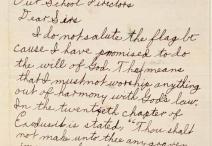 Our School Directors
Dear Sirs
I do not salute the flag be
cause I have promised to do
the will of God. That means
that I must not worship anything
out of harmony with God's law.
In the twentieth chapter of
Exodus it is stated, "Thou shalt
not make unto thee any graven